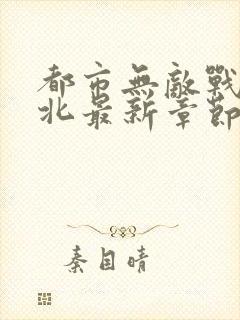 都市無敵戰
北最新章節
秦目晴